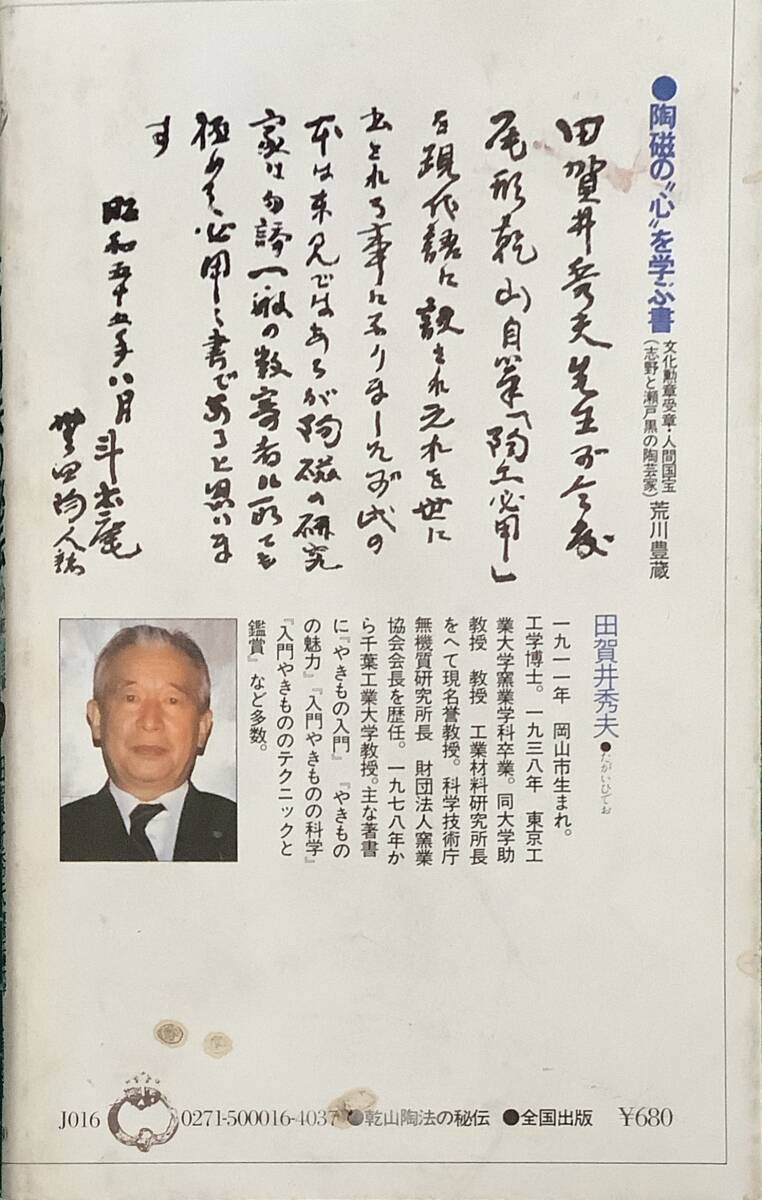 ●陶磁の〝心〟を学ぶ書
文化勲章受章・人間国宝
(志野と瀬戸黒の陶芸家)
荒川豊蔵
田賀井秀夫先生が今度
尾形乾山自筆「陶工必用」
を現代語に訳されこれを世に
出される事になりましたが此の
本は未見ではあるが陶磁の研究
家は勿論一般の数寄者に取ても
極めて必用な書であると思いま
す
昭和五十五年八月
斗出庵
豊四陶人
田賀井秀夫●たがいひでお
一九一一年 岡山市生まれ。
工学博士。一九三八年 東京工
業大学窯業学科卒業。同大学助
教授 教授 工業材料研究所長
をへて現名誉教授。科学技術庁
無機質研究所長 財団法人窯業
協会会長を歴任。一九七八年か
ら千葉工業大学教授。主な著書
に『やきもの入門』『やきもの
の魅力』『入門やきものの科学』
『入門やきもののテクニックと
鑑賞』など多数。
J016 0271-500016-4037 ●乾山陶法の秘伝 ●全国出版 ¥680